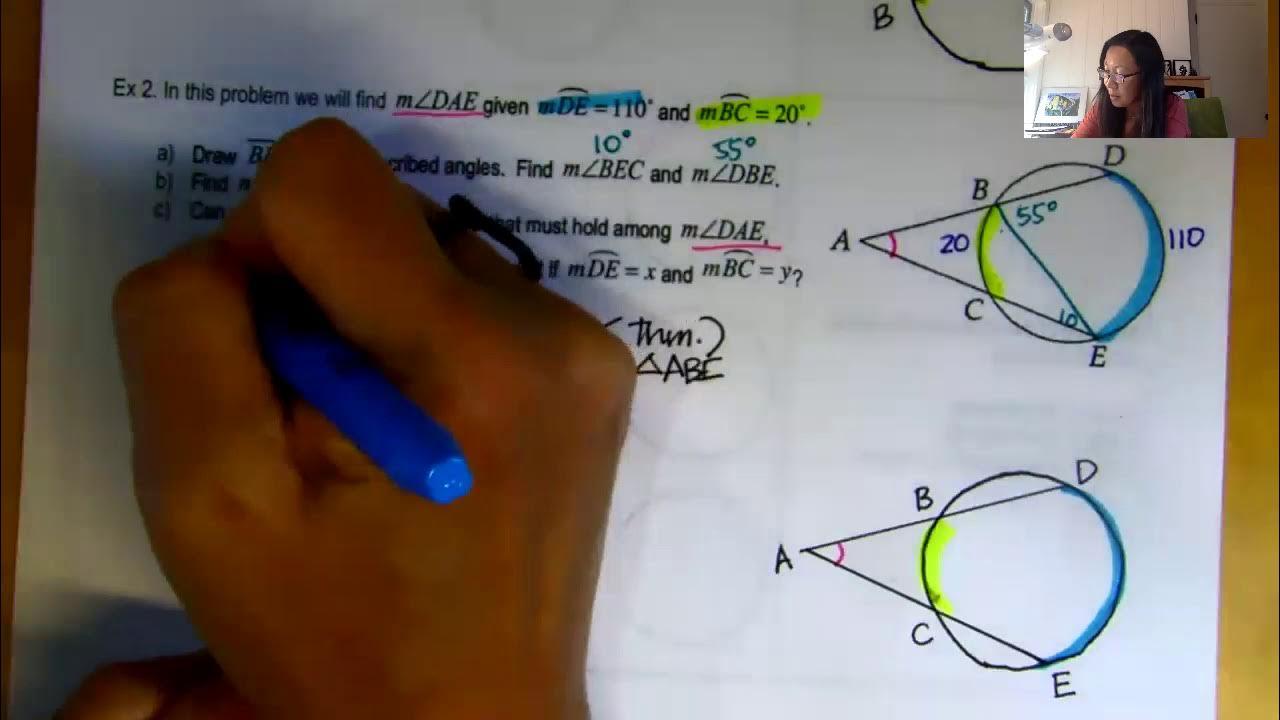 B
Ex 2. In this problem we will find m∠DAE given mDE = 110° and mBC = 20°.
10° 55°
a) Draw
cribed angles. Find m∠BEC and m∠DBE.
b) Find
c) Can
that must hold among m∠DAE,
if mDE = x and mBC = y?
Thm.)
△ABE
D
B
55°
A
20
110
C
10
E
D
B
A
C
E